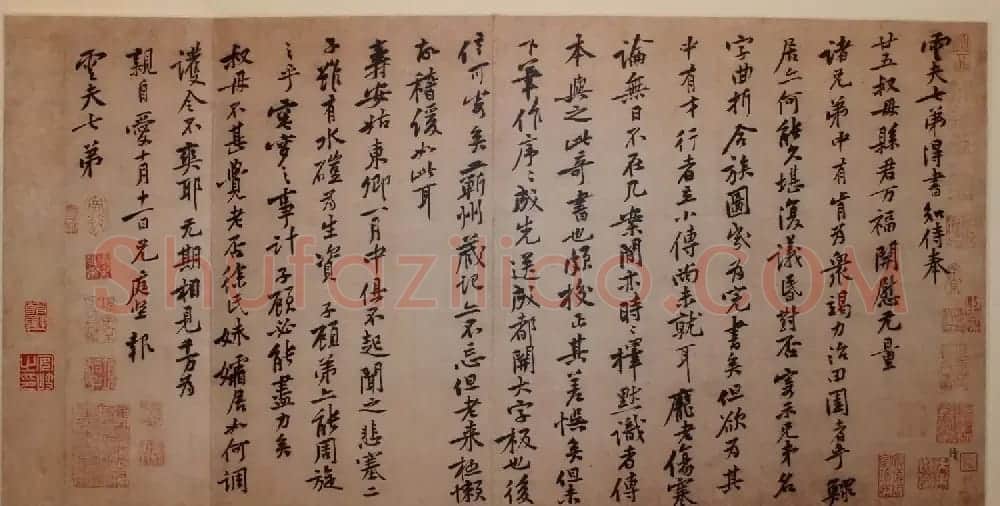 雲夫七弟得書知侍奉
廿五叔母縣君万福開慰无量
諸兄弟中有肯為衆竭力治田園者乎鰥
居亦何能久堪復議昏對否寄示兄弟名
字曲折合族圖幾為完書矣但欲為其
中有才行者立小傳尚未就耳龐老傷寒
論無日不在几案間亦時〻擇默識者傳
本與之此奇書也頗校正其差悮矣但未
下筆作序〻成先送成都開大字板也後
信可寄矣蘄州藏記亦不忘但老来極懶
故稽缓如此耳
壽安姑東卿一月中俱不起聞之悲塞二
子雖有水磑為生資子顧弟亦能周旋
之乎窀穸之事計子顧必能盡力矣
叔母不甚覺老否徐氏妹孀居如何調
護令不爽耶无期相見千万為
親自愛十月十一日兄庭堅報
雲夫七弟
Shufaziliao.COM